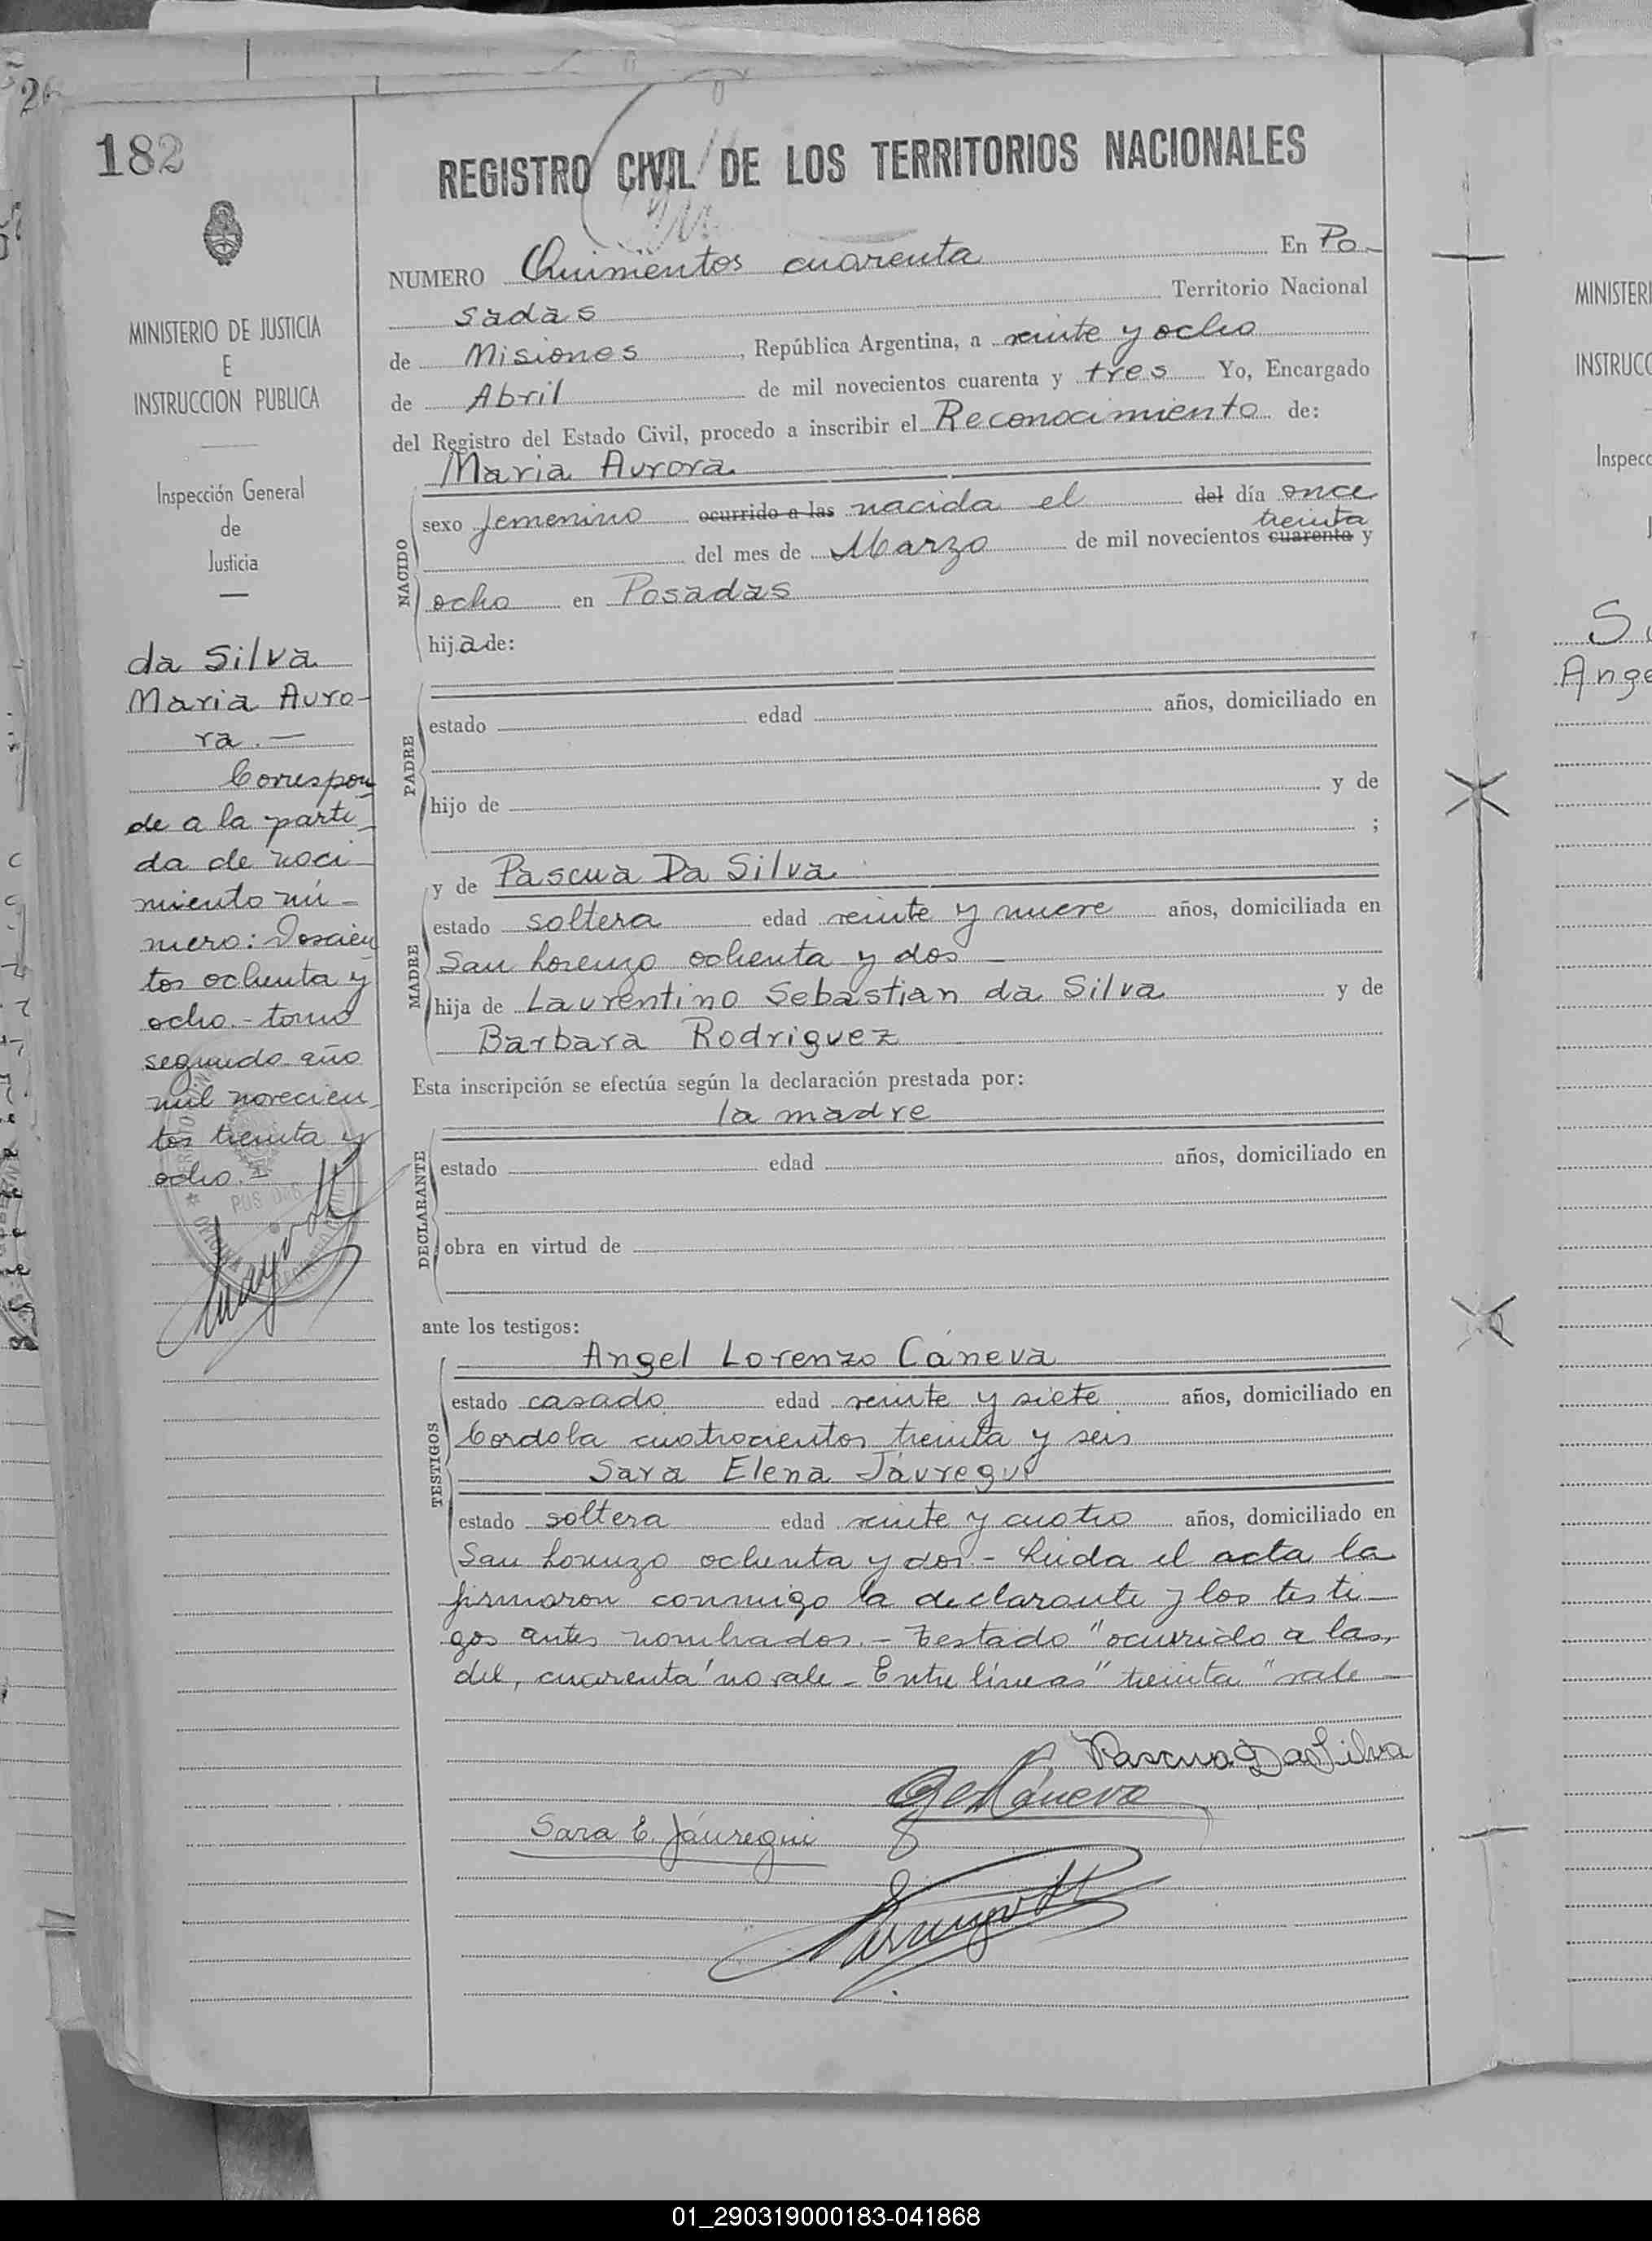 182
REGISTRO CIVIL DE LOS TERRITORIOS NACIONALES
MINISTERIO DE JUSTICIA
E
INSTRUCCION PUBLICA
Inspección General
de
Justicia
da Silva
Maria Auro-
ra.-
Correspon
de a la parti-
da de naci-
miento nú-
mero: Doscien
tos ochenta y
ocho.- tomo
segundo año
mil novecien-
tos treinta y
ocho.
NUMERO Quinientos cuarenta En Po-
sadas Territorio Nacional
de Misiones, República Argentina, a veinte y ocho
de Abril de mil novecientos cuarenta y tres Yo, Encargado
del Registro del Estado Civil, procedo a inscribir el Reconocimiento de:
Maria Aurora
NACIDO
sexo femenino ocurrido a las nacida el del día once
treinta
del mes de Marzo de mil novecientos cuarenta y
ocho en Posadas
hija de:
PADRE
estado edad años, domiciliado en
hijo de y de
;
MADRE
y de Pascua Da Silva
estado soltera edad veinte y nueve años, domiciliada en
San Lorenzo ochenta y dos -
hija de Laurentino Sebastian da Silva y de
Barbara Rodriguez
Esta inscripción se efectúa según la declaración prestada por:
la madre
DECLARANTE
estado edad años, domiciliado en
obra en virtud de
ante los testigos:
TESTIGOS
Angel Lorenzo Cáneva
estado casado edad veinte y siete años, domiciliado en
Cordoba cuatrocientos treinta y seis
Sara Elena Jáuregui
estado soltera edad veinte y cuatro años, domiciliado en
San Lorenzo ochenta y dos.- Leida el acta la
firmaron conmigo la declarante y los testi-
gos antes nombrados.- Testado "ocurrido a las,
del, cuarenta" no vale - Entre líneas "treinta" vale -
Pascua Da Silva
Cáneva
Sara E. Jáuregui
MINISTERI
INSTRUCC
Inspecc
Ange
01_290319000183-041868